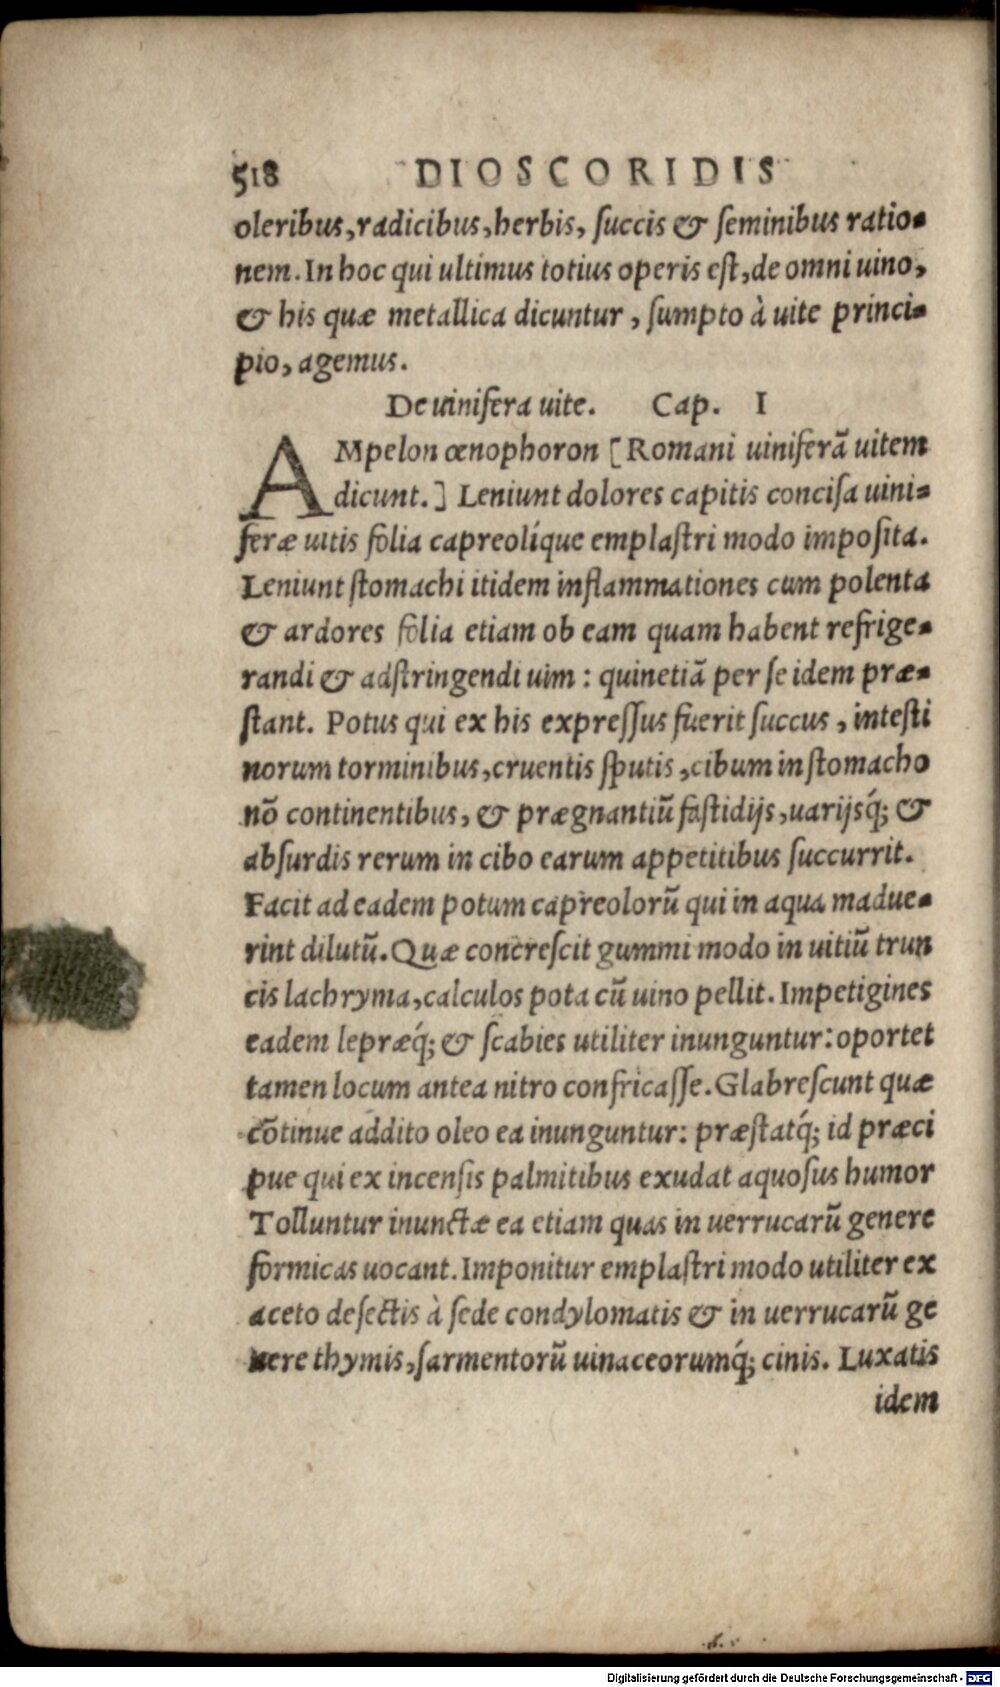 518 DIOSCORIDIS
oleribus, radicibus, herbis, succis & seminibus ratio-
nem. In hoc qui ultimus totius operis est, de omni uino,
& his quæ metallica dicuntur, sumpto à uite princi-
pio, agemus.
De uinifera uite. Cap. I
AMpelon œnophoron [Romani uiniferã uitem
dicunt.] Leniunt dolores capitis concisa uini-
feræ uitis folia capreolíque emplastri modo imposita.
Leniunt stomachi itidem inflammationes cum polenta
& ardores folia etiam ob eam quam habent refrige-
randi & adstringendi uim: quinetiã per se idem præ-
stant. Potus qui ex his expressus fuerit succus, intesti
norum torminibus, cruentis sputis, cibum in stomacho
nõ continentibus, & prægnantiũ fastidijs, uarijsq́; &
absurdis rerum in cibo earum appetitibus succurrit.
Facit ad eadem potum capreolorũ qui in aqua madue-
rint dilutũ. Quæ concrescit gummi modo in uitiũ trun
cis lachryma, calculos pota cũ uino pellit. Impetigines
eadem lepræq́; & scabies utiliter inunguntur: oportet
tamen locum antea nitro confricasse. Glabrescunt quæ
cõtinue addito oleo ea inunguntur: præstatq́; id præci
pue qui ex incensis palmitibus exudat aquosus humor
Tolluntur inunctæ ea etiam quas in uerrucarũ genere
formicas uocant. Imponitur emplastri modo utiliter ex
aceto desectis à sede condylomatis & in uerrucarũ ge
nere thymis, sarmentorũ uinaceorumq́; cinis. Luxatis
idem
Digitalisierung gefördert durch die Deutsche Forschungsgemeinschaft - DFG